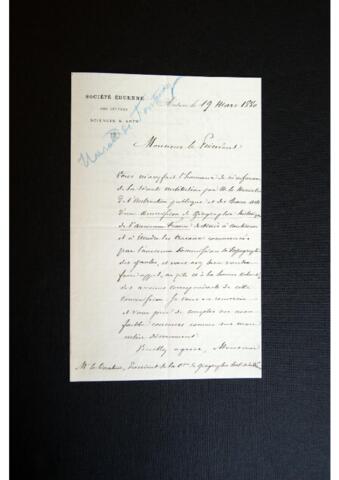 SOCIÉTÉ ÉDUENNE
DES LETTRES
SCIENCES & ARTS
Autun le 19 Mars 1880
Monsieur le Président
Vous m'avez fait l'honneur de m'informer
de la récente institution par M. le Ministre
de l'Instruction publique et des Beaux Arts
d'une Commission de Géographie historique
de l'ancienne France destinée à continuer
et à étendre les travaux commencés
par l'ancienne Commission de Topographie
des Gaules, et vous avez bien voulu
faire appel, au zèle et à la bonne volonté
des anciens correspondants de cette
Commission. Je vous en remercie
et vous prie de compter sur mon
faible concours comme sur mon
entier dévouement.
Veuillez agréer, Monsieur
Président de la Con de Géographie